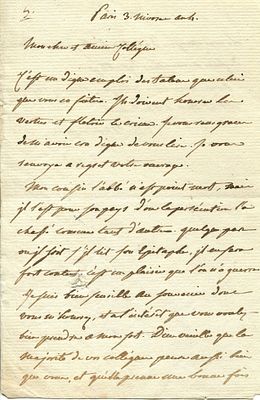 Paris 3. Nivose an 4.
Mon cher et ancien Collègue
C'est un digne emploi des talens que celui
que vous en faites. Ils doivent honorer la
vertu et flétrir le crime. Je vous rens grace
de m'avoir cru digne de vous lire. Je vous
renvoye à regret votre ouvrage.
Mon cousin l'abbé n'est point mort, mais
il l'est pour son pays d'où la persécution l'a
chassé comme tant d'autres. quelque part
où il soit, s'il lit son Epitaphe, il en sera
fort content, c'est un plaisir que l'on n'a guères
Je suis bien sensible au souvenir dont
vous m'honorez, et à l'intérêt que vous voulez
bien prendre à mon sort. Dieu veuille que la
majorité de vos collègues pense aussi bien
que vous, et une bonne fois